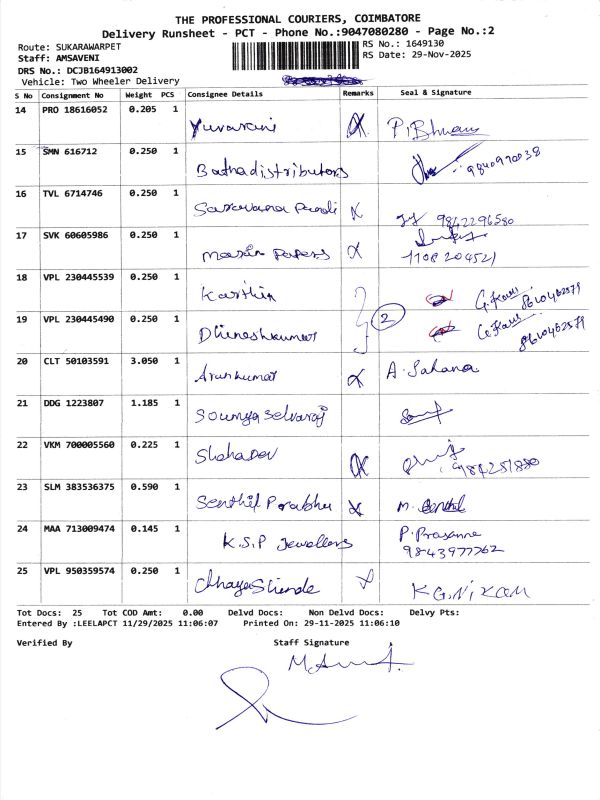 THE PROFESSIONAL COURIERS, COIMBATORE
Delivery Runsheet - PCT - Phone No.:9047080280 - Page No.:2
Route: SUKARAWARPET
RS No.: 1649130
Staff: AMSAVENI
RS Date: 29-Nov-2025
DRS No.: DCJB164913002
Vehicle: Two Wheeler Delivery
S No Consignment No Weight PCS Consignee Details Remarks Seal & Signature
14 PRO 18616052 0.205 1
Yuvarani
15 SMN 616712 0.250 1
Bathadistributors 9840970038
16 TVL 6714746 0.250 1
Saravana Pandi 9842296580
17 SVK 60605986 0.250 1
Papers
18 VPL 230445539 0.250 1
Karthik G.Kans 8610462579
19 VPL 230445490 0.250 1
Dhineshkumar 2 8610462579
20 CLT 50103591 3.050 1
Arunkumar A. Sahana
21 DDG 1223807 1.185 1
Soumya Selvaraj
22 VKM 700005560 0.225 1
Shahadev
23 SLM 383536375 0.590 1
Senthil Prabhu M.
24 MAA 713009474 0.145 1
K.S.P Jewellers P. Prasanna
9843977262
25 VPL 950359574 0.250 1
Chhaya Shinde K G. Nikam
Tot Docs: 25 Tot COD Amt: 0.00 Delvd Docs: Non Delvd Docs: Delvy Pts:
Entered By :LEELAPCT 11/29/2025 11:06:07 Printed On: 29-11-2025 11:06:10
Verified By Staff Signature